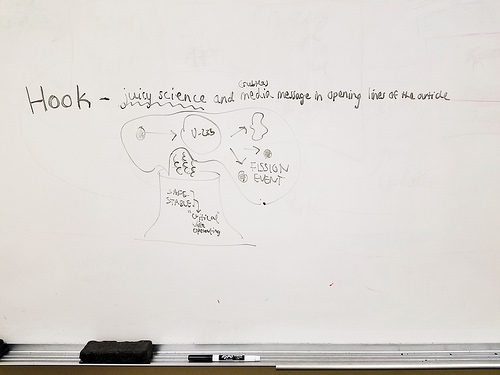 Hook - juicy science and crushed media message in opening lines of the article
U-235
FISSION
EVENT
SAFE?
STABLE?
"critical"
while
operating